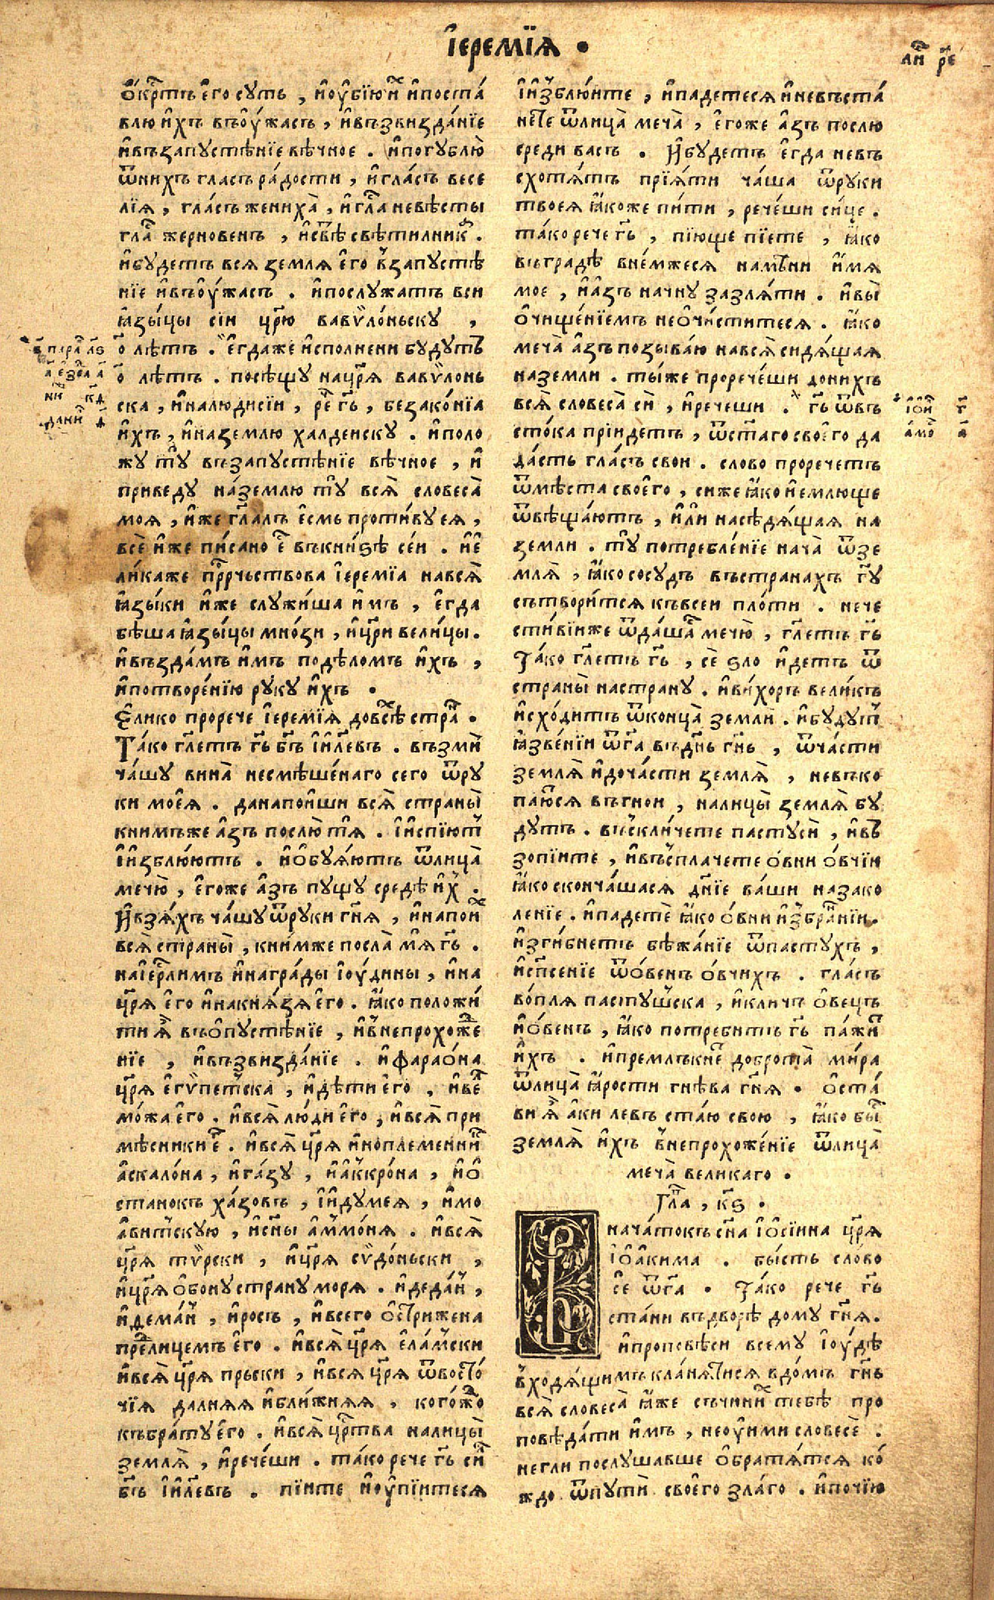 і҆еремїѧ •
ли҃ ре҃
ѻ҆́крⷭ҇тъ є҆го̀ суть , и҆оу҆бїю̀ и҆̀ и҆поста́
влю и҆́хъ въѻ҆́ужасъ , и҆възвизда́нїе
и҆възапусте́нїе вѣ́чное . и҆погублю̀
ѿни́хъ гласъ ра́дости , и҆гла́съ весе
лїѧ , гла́съ женихà , и҆ гла̑ невѣ́сты
гла̑ жерновенъ , и҆свⷮѣ свѣти́лникꙋ .
и҆будетъ всѧ землѧ є҆го̀ в̾запустѣ́
нїе и҆въѻ҆́ужасъ . и҆послужатъ вси
ꙗ҆зы́цы сїи цр҃ю вавѷло́ньску ,
ѻ҃ лѣтъ . Е҆гдаже и҆сполнени будутъ
ѻ҃ лѣтъ . посѣщу нацр҃ѧ вавѷлонь
ска , и҆налюдисїи , ре́ч гь҃ , безако́нїа
и҆́хъ , и҆наземлю халдейску . и҆поло
жу ту̀ въ запусте́нїе вѣ́чное , и҆
приведу на́землю ту̀ всѧ̀ словеса̀
моѧ , и҆́же гл҃алъ є҆смь проти́ву еѧ ,
всѐ и҆́же пи́сано є҆́ въкни́ѕѣ се́и . и҆є҆
ли́каже прⷪ҇рчьствова і҆еремїа навсѧ̀
ꙗ҆зы́ки и҆́же служи́ша и҆́мъ , є҆гда
бѣ́ша ꙗ҆зы́цы мно́зи , и҆цр҃и вели́цы .
и҆възда́мъ и҆́мъ подѣломъ и҆́хъ ,
и҆потворе́нїю руку и҆́хъ .
Е҆лико прорече і҆еремїѧ довсѣ́ стра̑ .
Та́ко гл҃етъ гь҃ бг҃ъ і҆и҃левъ . възмѝ
ча́шу вина̀ несмѣше́наго сего ѿру
ки мое́ѧ . данапои́ши всѧ̀ страны̀
книмъже а҆́зъ послю̀ тѧ̀ . і҆и҆спїютъ
і҆и҆зблюю́тъ . и҆ѻ҆буѧ́ютъ ѿлица̀
мечю̀ , є҆го́же а҆́зъ пущу средѣ̀ и҆́х .
И҆взѧ́хъ ча́шу ѿруки гн҃ѧ , и҆напои́х
всѧ̀ страны̀ , кни́мже посла̀ мѧ̀ гь҃ .
наі҆ерⷭ҇лимъ и҆награ́ды і҆ю́дины , и҆на
цр҃ѧ є҆го̀ и҆накнѧ́зѧ є҆го̀ . ꙗ҆́ко положи́
ти ꙗ҆̀ въѻ҆пусте́нїе , и҆в̾непрохоже́
нїе , и҆възвизда́нїе . и҆ фараѻ́на
цр҃ѧ є҆гѷпетска , и҆дѣти є҆го̀ , и҆веⷧ҇
мо́жа є҆го̀ . и҆всѧ̀ лю́ди є҆го̀ , и҆всѧ̀ при
мѣсники є҆́ . и҆всѧ̀ цр҃ѧ и҆ноплеме́нни
а҆скало́на , и҆га́зу , и҆а҆ккро́на , и҆ѻ҆
станокъ ха́зовъ , і҆и҆думеѧ , и҆мо
а҆витскую , и҆сн҃ы а҆ммо́нѧ . и҆всѧ̀
цр҃ѧ тѷ́рски , и҆цр҃ѧ сѷдо́ньски ,
и҆цр҃ѧ ѻ҆бону страну морѧ . и҆деда́н ,
и҆дема́н , и҆росъ , и҆всего ѻ҆стрижена
пре́лицемъ є҆го̀ . и҆всѧ̀ цр҃ѧ є҆ла́мски
и҆всѧ̀ цр҃ѧ прьски , и҆всѧ̀ цр҃ѧ ѿвосто́
чїѧ далнѧѧ и҆бли́жнѧѧ , кого́жо
къбра́ту є҆го̀ . и҆всѧ̀ црⷭ҇тва налицы̀
землѧ̀ , и҆рече́ши . та́ко рече гь҃ си́л
бг҃ъ і҆и҃левъ . пїи́те и҆оу҆пїи́тесѧ
і҆и҆зблю́ите , и҆паде́тесѧ и҆невъста́
нете ѿлица̀ меча̀ , є҆го́же а҆́зъ послю
среди васъ . И҆будетъ є҆гда невъ
схотѧ́тъ прїѧ́ти ча́ша ѿруки
твоеѧ ꙗ҆́коже пи́ти , рече́ши си́це .
та́ко рече гь҃ , пїюще пїе́те , ꙗ҆́ко
въгра́дѣ вне́мжесѧ намѣни и҆́мѧ
мое , и҆а҆́зъ начну зазлѧти . и҆вы̀
ѻ҆чище́нїемъ неѻ҆чи́ститесѧ . ꙗ҆́ко
меча̀ а҆́зъ позыва́ю навсѧ̀ сидѧ́щаѧ
наземли . ты́же проречеши донихъ
всѧ̀ словеса̀ сѝ , и҆речеши . гь҃ ѿвъ
сто́ка прїидетъ , ѿстаго свое́го да
да́сть гла́съ свои . слово проречетъ
ѿмѣста своего , сиже ꙗ҆́ко и҆емлюще
ѿвѣща́ютъ , и҆́ли насѣдѧ́щаѧ на
земли . ту̀ потребле́нїе нача̀ ѿзе
млѧ̀ , ꙗ҆́ко сосудъ въстранахъ гь҃
сътвори́тсѧ къвсеи пло́ти . нече
сти́вїиже ѿда́ша мечю̀ , гл҃етъ гь҃
Та́ко гл҃етъ гь҃ , сѐ ѕло и҆детъ ѿ
страны̀ настрану . и҆ви́хоръ вели́къ
и҆схо́дитъ ѿконца̀ земли̂ . и҆будутъ
ꙗ҆зве́нїи ѿга въдн҃ь гн҃ь , ѿча́сти
землѧ̀ и҆доча́сти землѧ̀ , невъко
паю́сѧ въгнои , налицы̀ землѧ̀ бу
дутъ . въскли́чете пастуси , и҆въ
зопїи́те , и҆въсплачете ѻ҆́вни ѻ҆́вчїи
ꙗ҆́ко сконча́шасѧ дн҃їе ва́ши назако
ленїе . и҆падете̂ ꙗ҆́ко ѻ҆́вни и҆збра́нїи .
и҆зги́бнетъ бѣжа́нїе ѿпастухъ ,
и҆сп҃сенїе ѿѻ҆́венъ ѻ҆́вчихъ . гла́съ
во́плѧ пасту́шска , и҆кли́чъ ѻ҆ве́цъ
и҆ѻ҆́венъ , ꙗ҆́ко потреби́тъ гь҃ па́жи
и҆́хъ . и҆премлъкне́ доброта̀ ми́ра
ѿлица̀ ꙗ҆́рости гнѣ́ва гн҃ѧ . ѻ҆ста́
ви ꙗ҆̀ а҆ки левъ ста́ю свою , ꙗ҆́ко бы́
землѧ̀ и҆́хъ в̾непрохоже́нїе ѿлица̀
меча̀ вели́каго .
Гла̑ , кѕ҃ .
В нача́токъ сн҃а і҆ѻ҆сїи́на цр҃ѧ
і҆ѻ҆а҆кима . бы́сть слово
се ѿга . Та́ко рече гь҃
ста́ни въдворѣ̀ дому гн҃ѧ .
и҆проповѣ́си всему і҆ю́дѣ
в̾ходѧ́щимъ кла́нѧтисѧ вдо́мъ гн҃ь
всѧ̀ словеса̀ ꙗ҆́же съчини́х тебѣ̀ про
повѣ́дати и҆́мъ , неоу҆и́ми словесѐ .
негли послу́шавше ѻ҆братѧ́тсѧ ко́
ждо ѿпути̂ своего̀ зла́го . и҆почїю